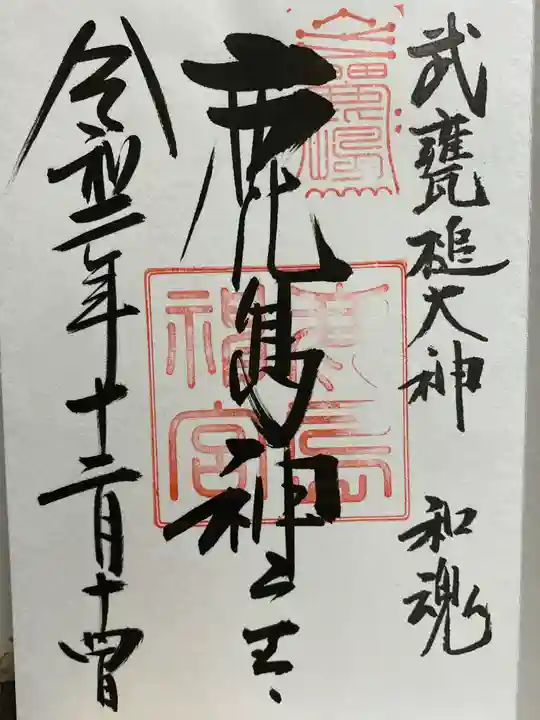 武甕槌大神 和魂
鹿島神
令和二年十二月十四日
鹿島
神宮